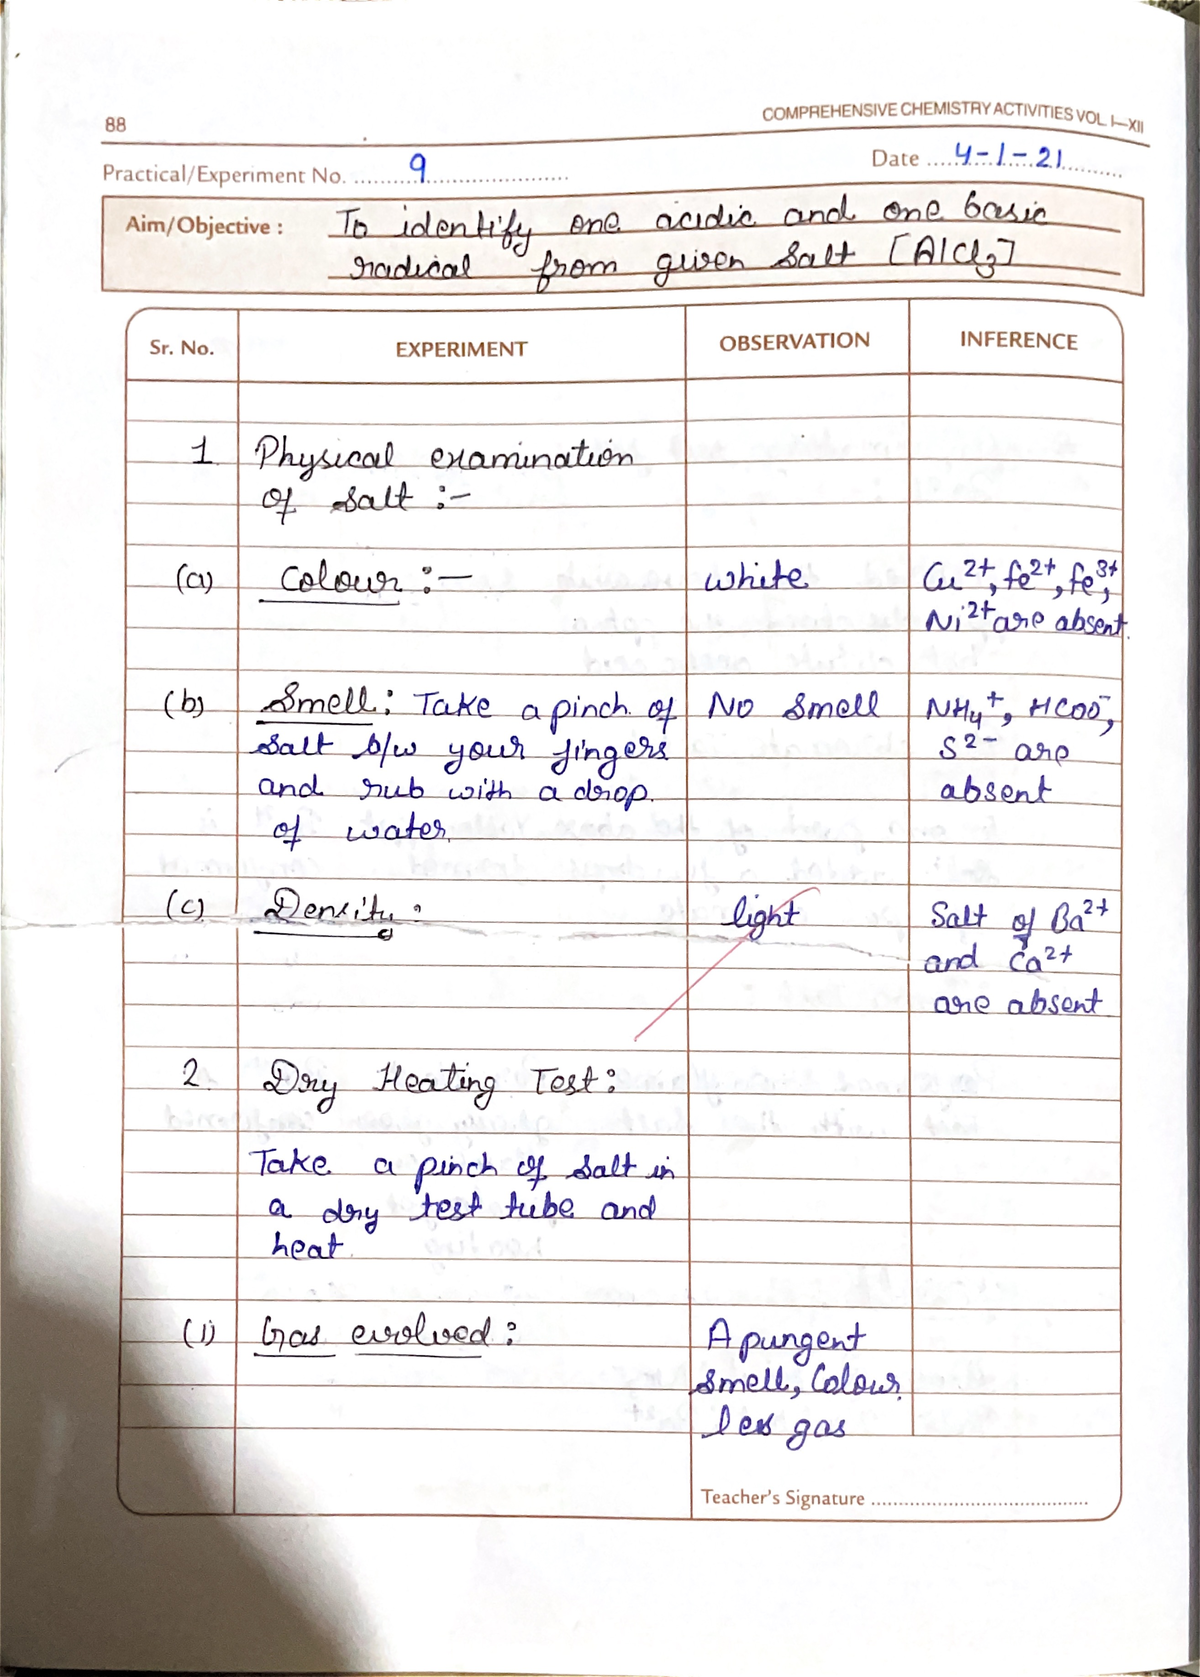 88
COMPREHENSIVE CHEMISTRY ACTIVITIES VOL. I—XII
Practical/Experiment No. ........9........
Date ....4-1-21........
Aim/Objective : To identify one acidic and one basic
radical from given salt [AlCl3]
Sr. No. EXPERIMENT OBSERVATION INFERENCE
1 Physical examination
of salt :-
(a) Colour :- white Cu2+, fe2+, fe3+,
Ni2+ are absent.
(b) Smell : Take a pinch of No smell NH4+, HCOO-,
salt b/w your fingers S2- are
and rub with a drop. absent
of water.
(c) Density : light Salt of Ba2+
and Ca2+
are absent
2. Dry Heating Test :
Take a pinch of salt in
a dry test tube and
heat.
(i) Gas evolved : A pungent
smell, Colour
less gas
Teacher's Signature ........................................